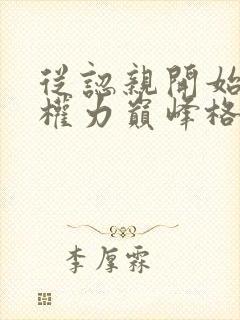 從認親開始
權力巔峰格
李厚霖